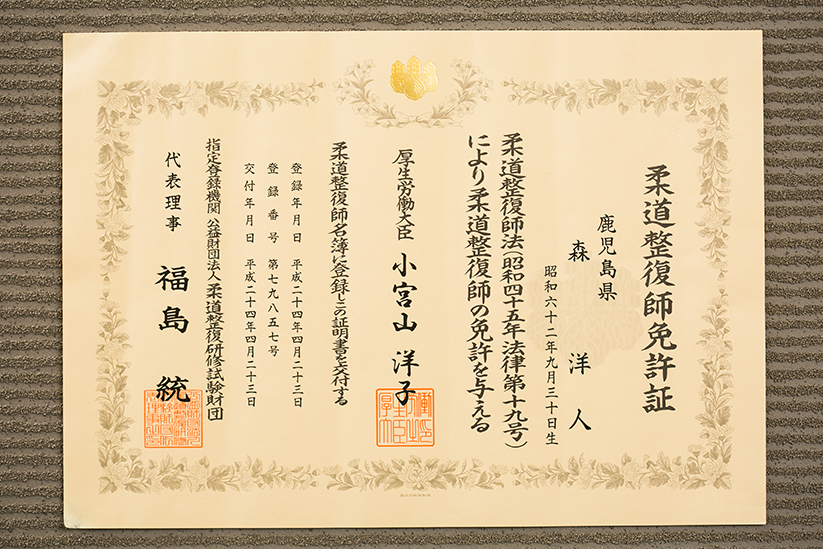 柔道整復師免許証
鹿児島県
森 洋人
昭和六十二年九月三十日生
柔道整復師法(昭和四十五年法律第十九号)
により柔道整復師の免許を与える
厚生労働大臣 小宮山 洋子
柔道整復師名簿に登録しこの証明書を交付する
登録年月日 平成二十四年四月二十三日
登録番号 第七九八五七号
交付年月日 平成二十四年四月二十三日
指定登録機関 公益財団法人 柔道整復研修試験財団
代表理事 福島 統